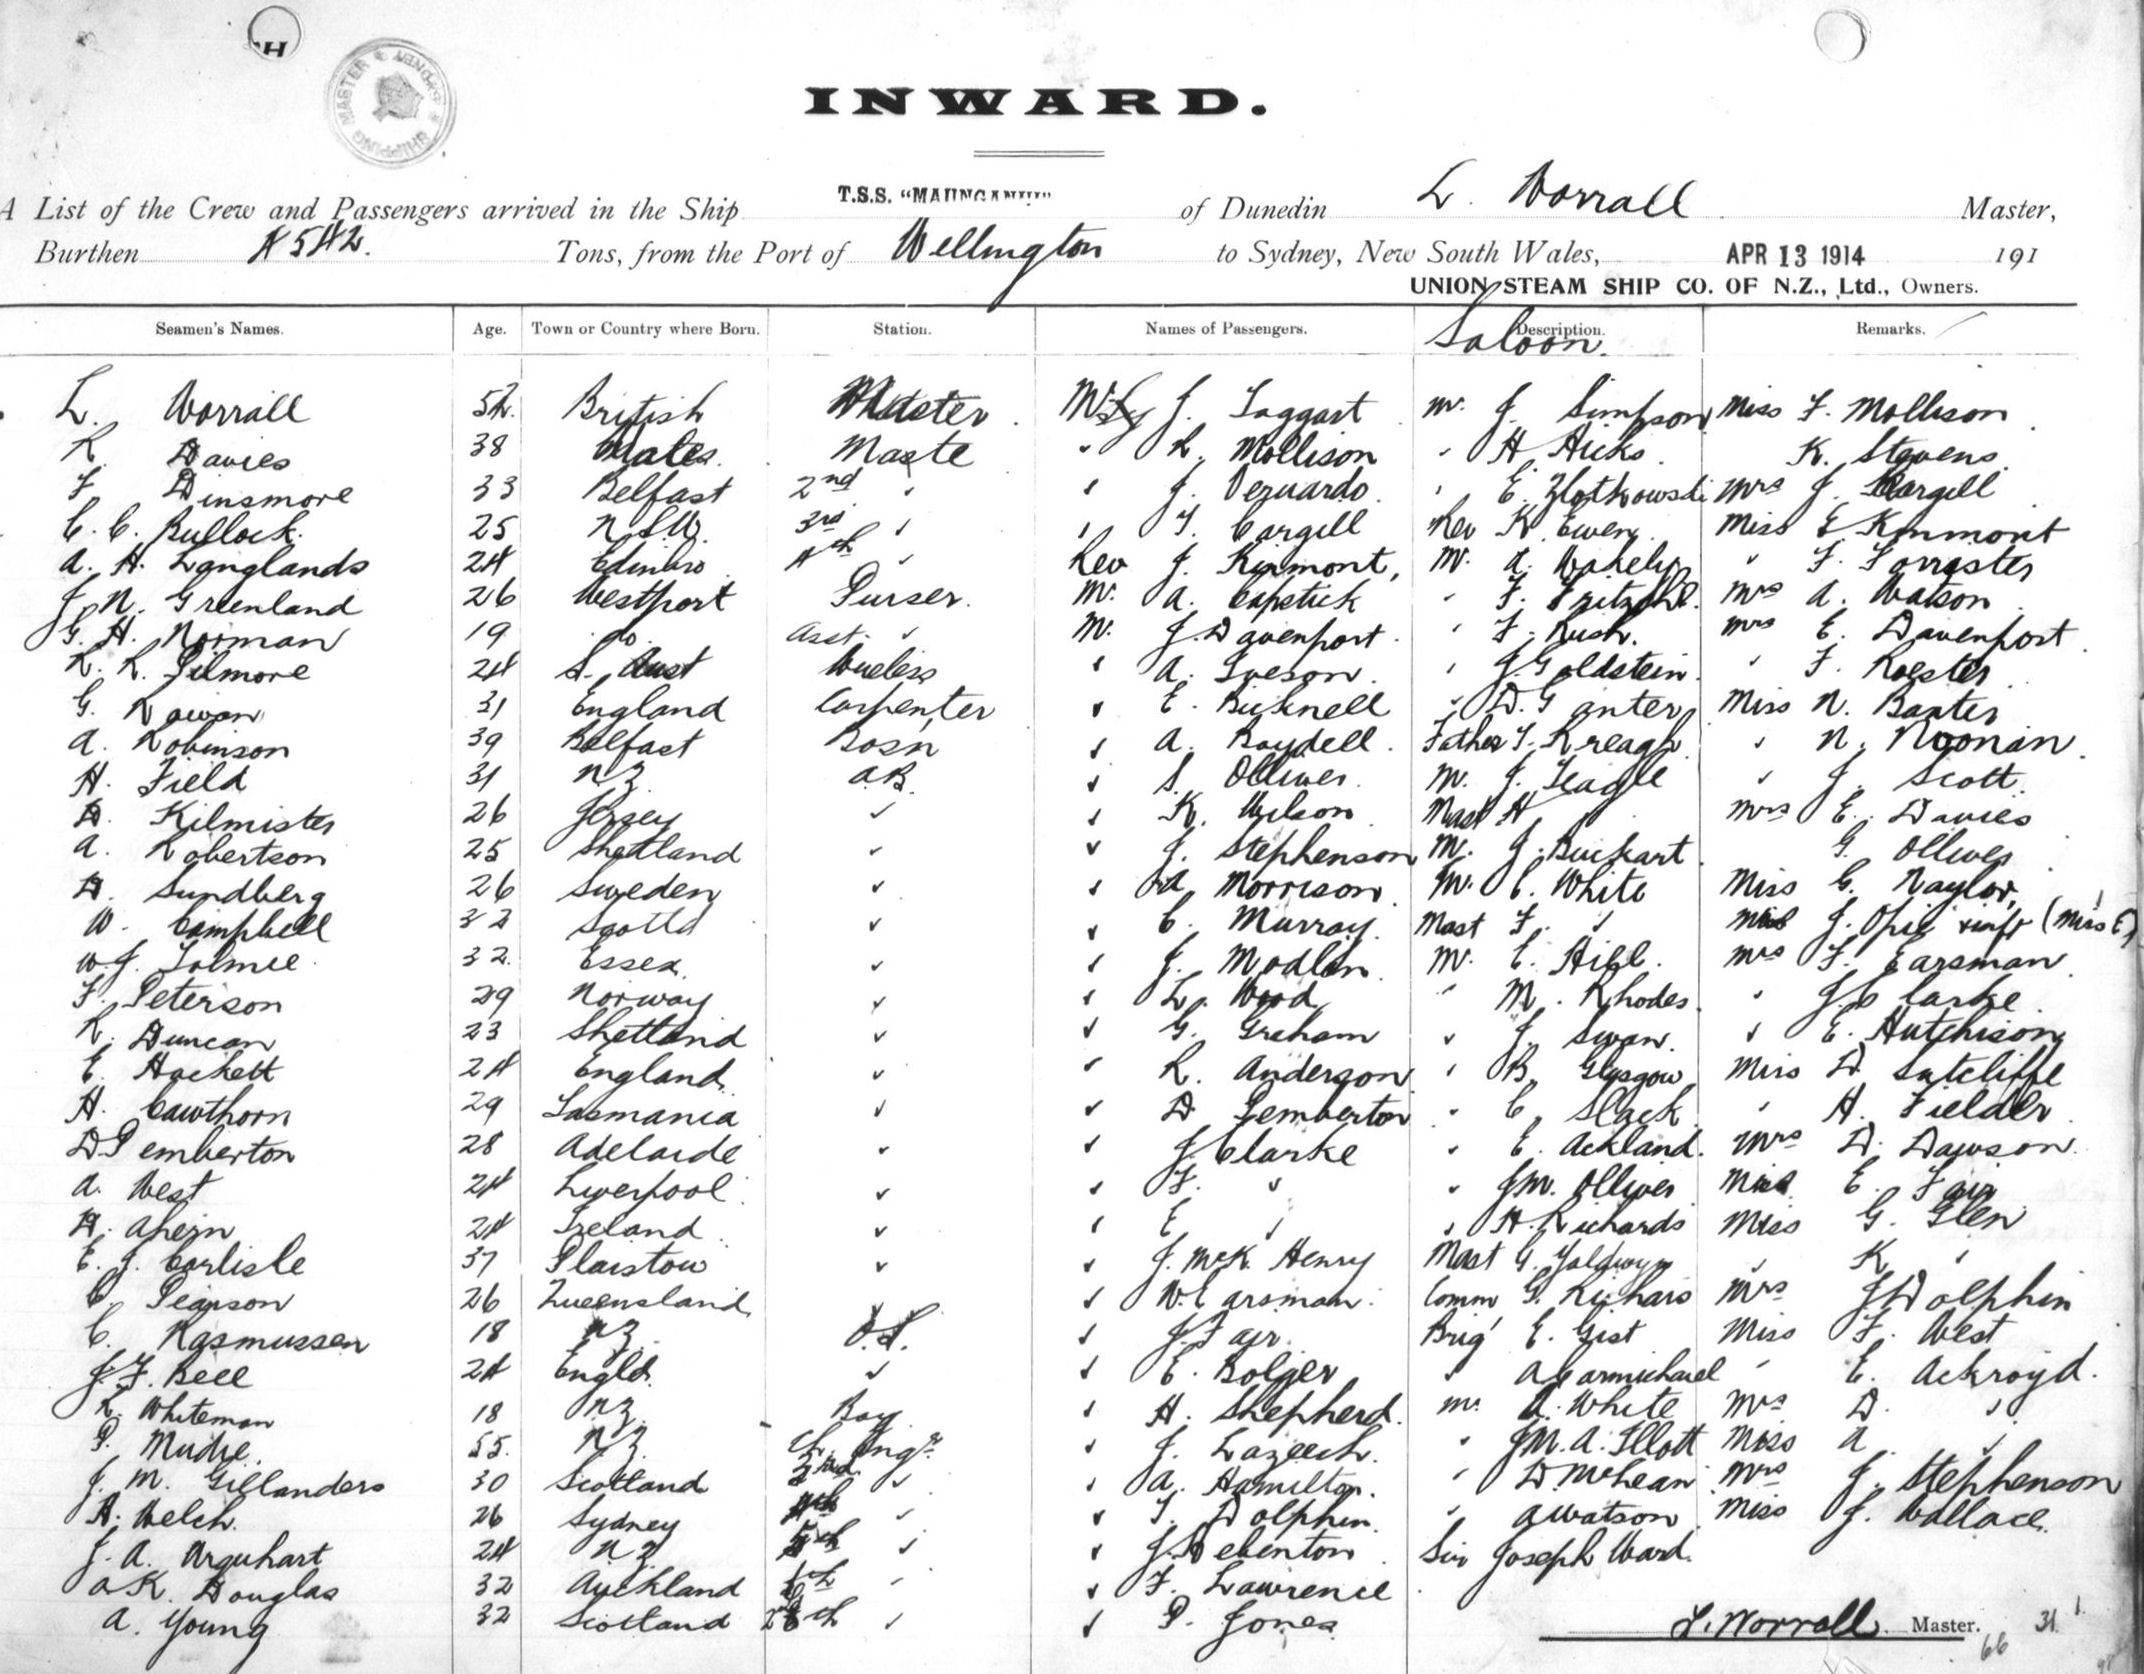 SHIPPING MASTER SYDNEY
INWARD.
A List of the Crew and Passengers arrived in the Ship T.S.S. "MAUNGANUI" of Dunedin L. Worrall Master,
Burthen 4542. Tons, from the Port of Wellington to Sydney, New South Wales, APR 13 1914 191
UNION STEAM SHIP CO. OF N.Z., Ltd., Owners.
Seamen's Names. Age. Town or Country where Born. Station. Names of Passengers. Description. Remarks.
Saloon.
L. Worrall 52. British Master Mr J. Taggart Mr. J. Simpson Miss F. Mollison
R. Davies 38 Wales. Mate " L. Mollison " H. Hicks. K. Stevens
F. Dinsmore 33 Belfast 2nd " " J. " E. Zlotkowski Mrs J. Cargill
C. C. Bullock. 25 N.S.W. 3rd " " T. Cargill Rev H. Ewen Miss E. Kinmont
A. H. Langlands 24 Edinbro 4th " Rev J. Kinmont, Mr. A. Wakely " F. Forrester
J. N. Greenland 26 Westport Purser. Mr. A. Capstick " F. Mrs A. Watson
G. H. Norman 19 do. Asst. " Mr. J. Davenport " F. Rush. Mrs E. Davenport
R. R. Gilmore 24 S. Aust Wireless " A. Iveson. " J. Goldstein. " F. Roester
G. Rowan 31 England Carpenter " E. Bicknell " D. Ganter Miss N. Baxter
A. Robinson 39 Belfast Bosn " A. Boydell. Father T. Kreagh " N. Noonan.
H. Field 31 N Z. A.B. " S. Olliver. Mr. J. Teagle " J. Scott.
D. Kilmister 26 Jersey " " K. Wilson Mast H " Mrs E. Davies
A. Robertson 25 Shetland " " J. Stephenson Mr. J. Buckart G. Olliver
D. Sundberg 26 Sweden " " A. Morrison Mr. C. White Miss C. Naylor,
W. Campbell 32 Scotld " " C. Murray. Mast F. " J. Opie & inft (Miss E)
W. J. Tolmie. 32. Essex. " " J. Modlin. Mr. E. Hill. Mrs F. Earsman
F. Peterson 29 Norway " " L. Wood " M. Rhodes. " J. Clarke
R. Duncan 23 Shetland " " G. Graham " J. Swan. " E. Hutchison
E. Hackett 24 England. " " R. Anderson " B. Glasgow Miss D. Sutcliffe
H. Cawthorn 29 Tasmania " " D. Pemberton " C. Slack " H. Fielder
D. Pemberton 28 Adelaide " " J. Clarke " E. Ackland. Mrs D. Dawson.
A. West 24 Liverpool. " " F. " " J.M. Olliver Miss E. Fair
D. Ahern 24 Ireland. " " E " " H. Richards Miss G. Glen
E. J. Carlisle 37 Plaistow " " J. McK. Henry Mast G. Yaldwyn " K "
C. Pearson 26 Queensland " " W. Earsman. Comm G. Richards Mrs J. Dolphin
C. Rasmussen 18 NZ. O.S. " J. Fair. Brig' E. Gist Miss F. West
J. F. Bell 24 Engld. " " E. Bolger " A Carmichael " E. Ackroyd.
R. Whiteman 18 NZ. Boy " H. Shepherd. Mr. A. White Mrs D. "
P. Mudie. 55. NZ. Ch. Engr. " J. " J.M.A. Illott Miss A. "
J. M. Gillanders 30 Scotland 2nd " " A. Hamilton. " D. McLean Mrs J. Stephenson
H. Welch. 26 Sydney 4th " " T. Dolphin. " A Watson Miss J. Wallace.
J. A. Urquhart 24 N Z. 5th " " J. Sir Joseph Ward.
K. Douglas 32 Auckland 6th " " F. Lawrence
A. Young 32 Scotland " " P. Jones
L. Worrall. Master. 31
66